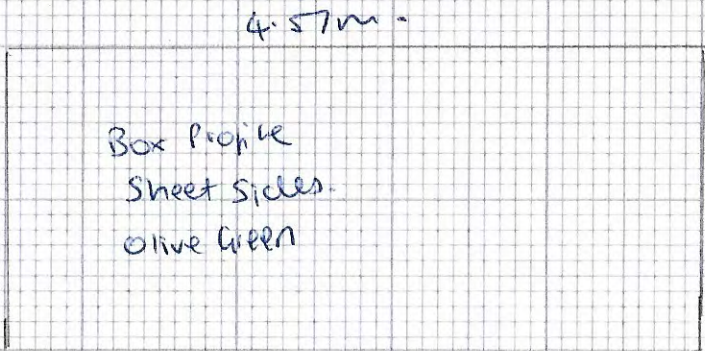 4.57m.
Box Profile
Sheet Sides.
Olive Green